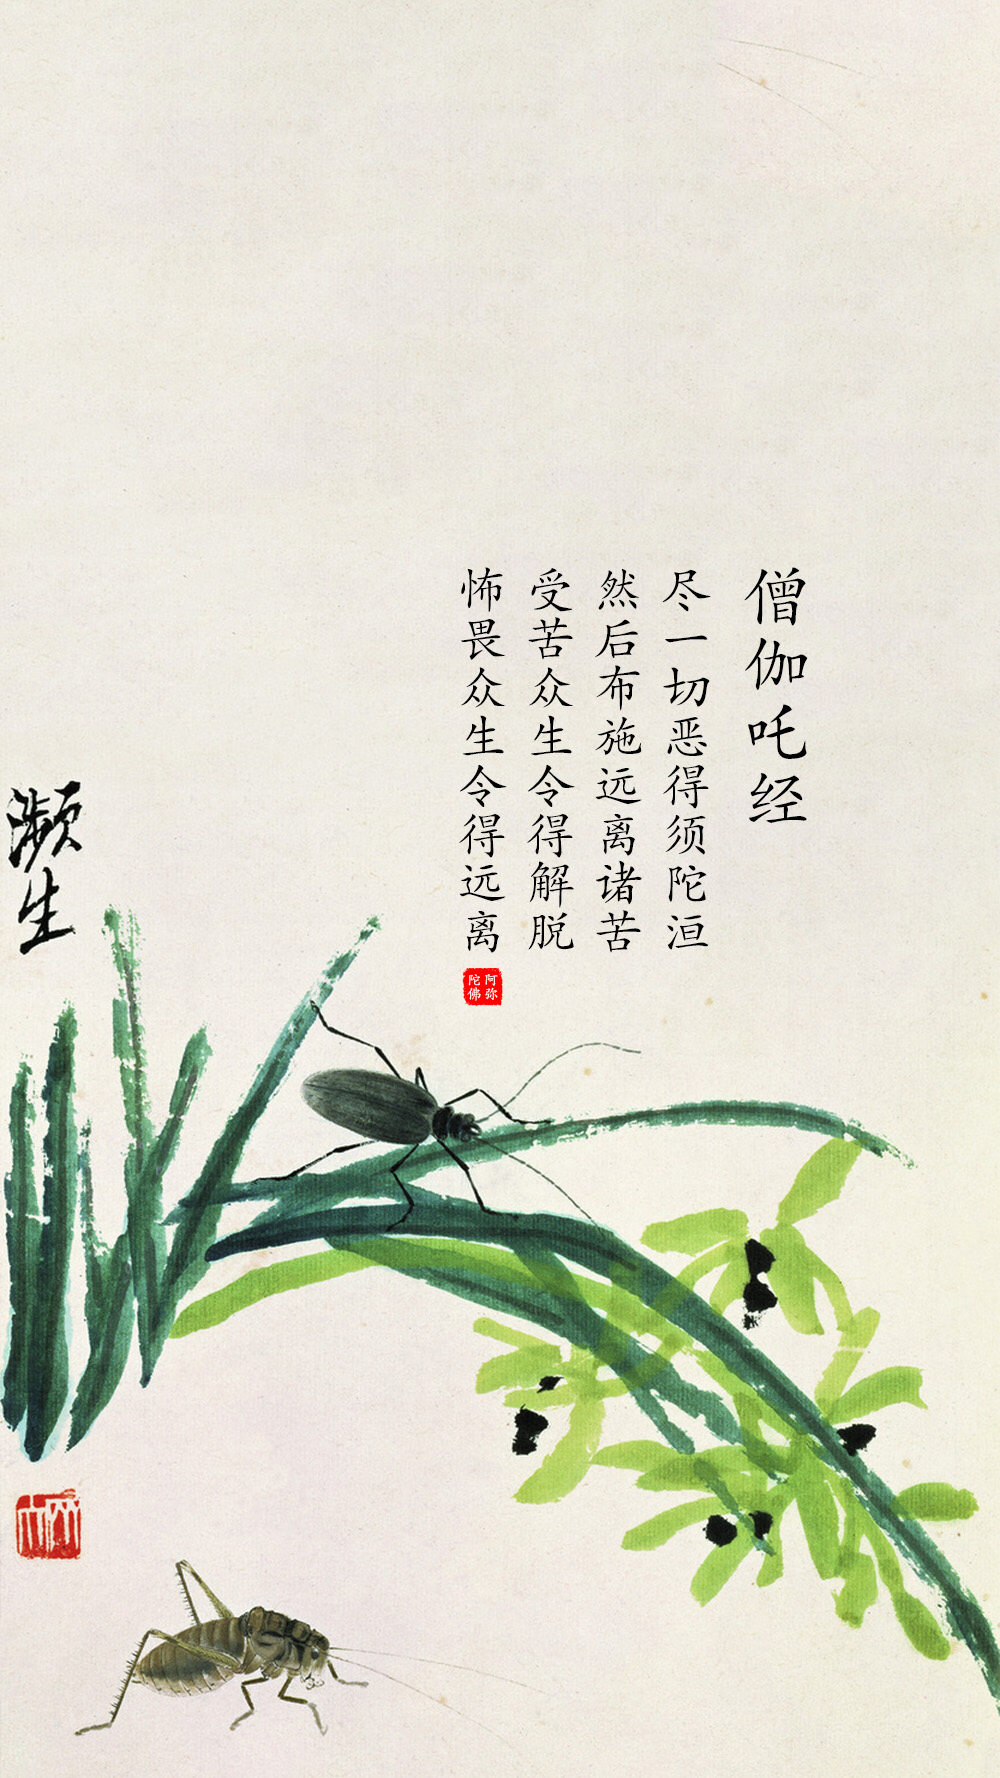 僧伽吒经
尽一切恶得须陀洹
然后布施远离诸苦
受苦众生令得解脱
怖畏众生令得远离
阿弥
陀佛
濒生